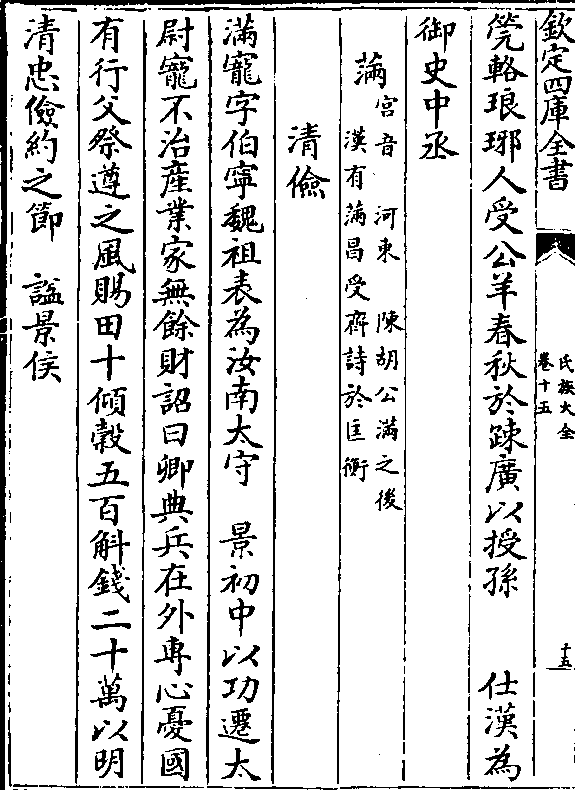 欽定四庫全書
氏族大全
卷十五
十五
筦輅琅琊人受公羊春秋於踈廣以授孫　仕漢為
御史中丞
滿
宮音　河東　陳胡公滿之後
漢有滿昌受齊詩於匡衡
清儉
滿寵字伯寧魏祖表為汝南太守　景初中以功遷太
尉寵不治産業家無餘財詔曰卿典兵在外専心憂國
有行父祭遵之風賜田十傾榖五百斛錢二十萬以明
清忠儉約之節　諡景侯